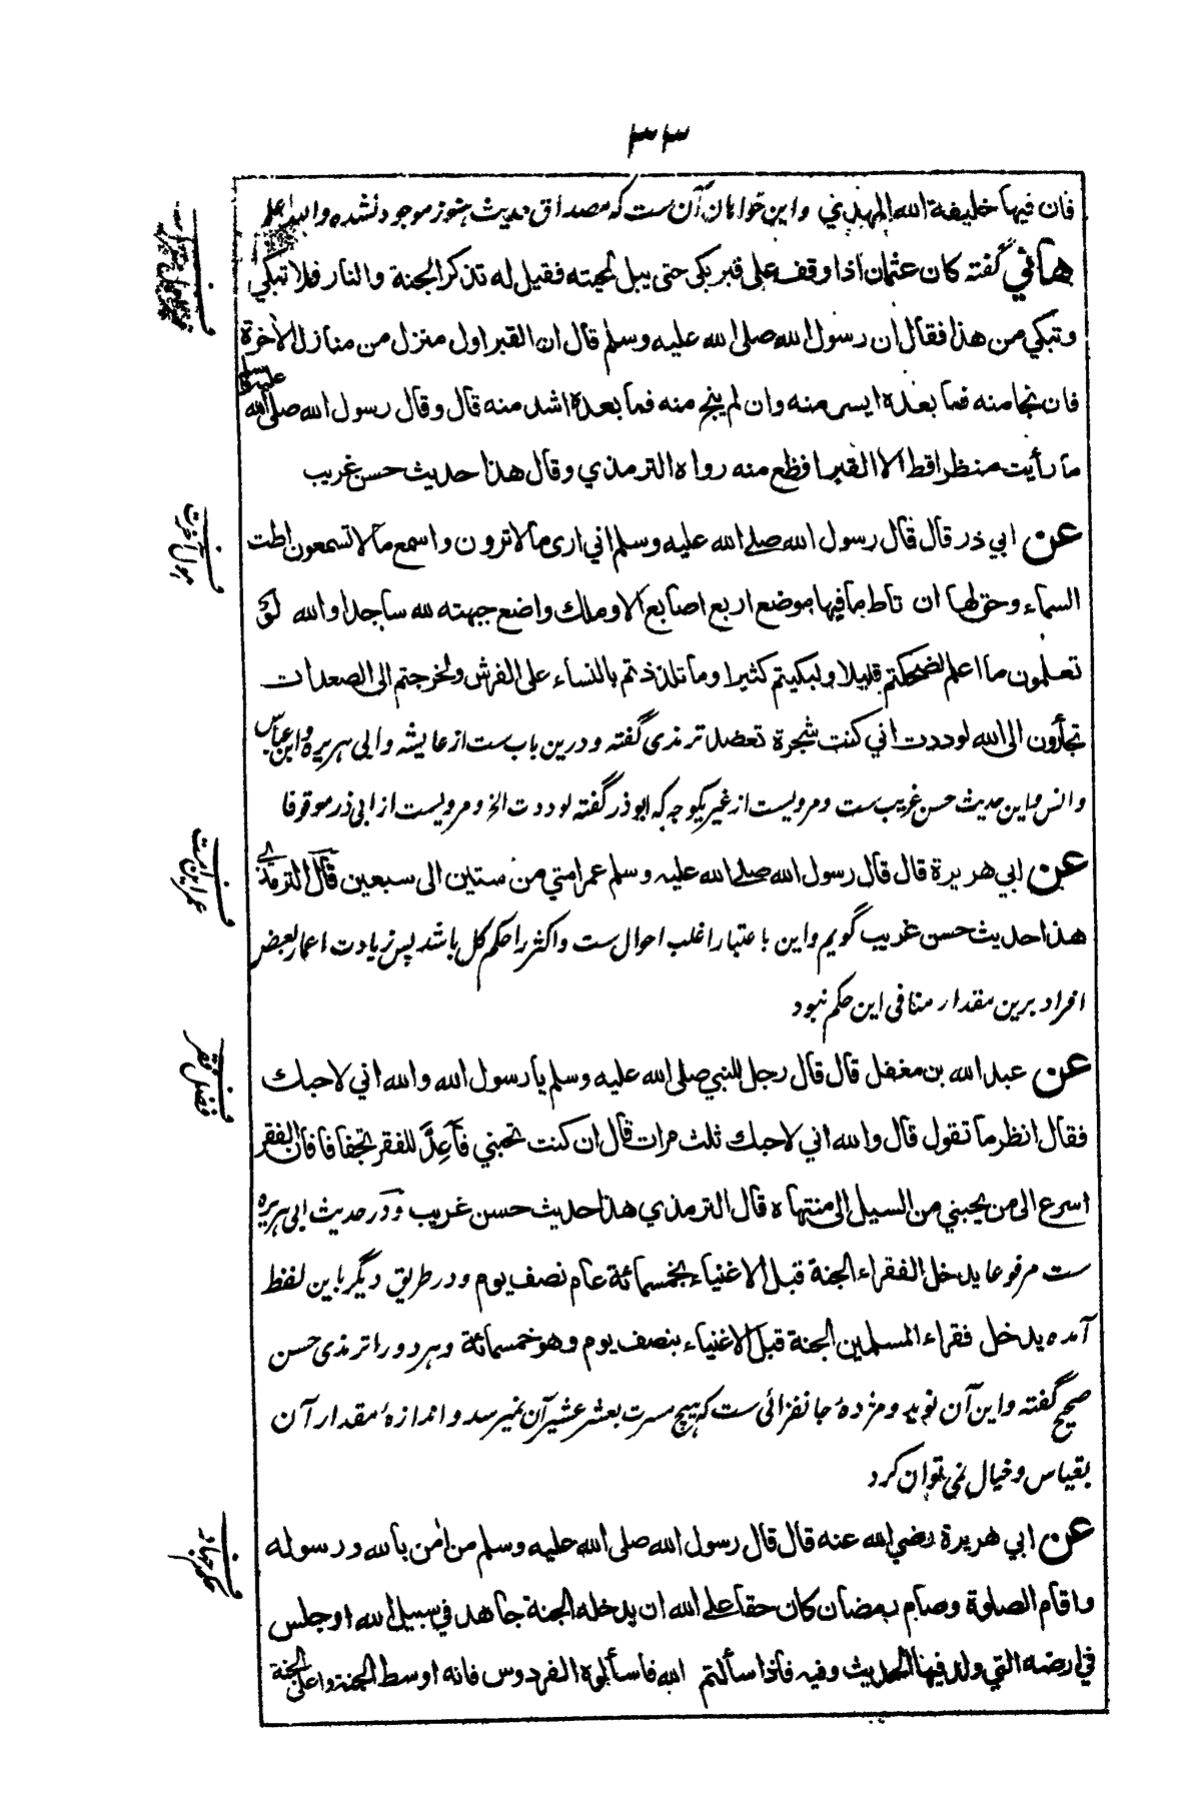 ٣٣
فان فيها خليفة الله المهدي واین خواهان آن ست که مصداق حدیث هنوز موجود نشده والله اعلم
هاني گفته كان عثمان اذا وقف على قبر بكى حتى يبل لحيته فقيل له تذكر الجنة والنار فلا تبكي
وتبكي من هذا فقال ان رسول الله صلى الله عليه وسلم قال ان القبر اول منزل من منازل الآخرة
فان نجا منه فما بعده ايسر منه وان لم ينج منه فما بعده اشد منه قال وقال رسول الله صلى الله عليه وسلم
ما رأيت منظرا قط الا القبر افظع منه رواه الترمذي وقال هذا حديث حسن غريب
عن ابي ذر قال قال رسول الله صلى الله عليه وسلم اني ارى ما لا ترون واسمع ما لا تسمعون اطت
السماء وحق لها ان تاط ما فيها موضع اربع اصابع الا وملك واضع جبهته لله ساجدا والله لو
تعلمون ما اعلم لضحكتم قليلا ولبكيتم كثيرا وما تلذذتم بالنساء على الفرش ولخرجتم الى الصعدات
تجأرون الى الله لوددت اني كنت شجرة تعضد ترمذی گفته ودرین باب ست از عایشه وابی هریره وابن عباس
وانس واین حدیث حسن غریب ست ومرویست از غیر یکوجه که ابو ذر گفته لوددت الخ ومرویست از ابی ذر موقوفا
عن ابي هريرة قال قال رسول الله صلى الله عليه وسلم عمر امتي من ستين الى سبعين قال الترمذي
هذا حديث حسن غريب گویم واین باعتبار اغلب احوال ست واکثر را حکم کل باشد پس زیادت اعمار بعض
افراد برین مقدار منافی این حکم نبود
عن عبد الله بن مغفل قال قال رجل للنبي صلى الله عليه وسلم يا رسول الله والله اني لاحبك
فقال انظر ما تقول قال والله اني لاحبك ثلث مرات قال ان كنت تحبني فأعِدَّ للفقر تجفافا فان الفقر
اسرع الى من يحبني من السيل الى منتهاه قال الترمذي هذا حديث حسن غريب ودر حدیث ابی هریره
ست مرفوعا يدخل الفقراء الجنة قبل الاغنياء بخمسمائة عام نصف يوم ودر طریق دیگر باین لفظ
آمده يدخل فقراء المسلمين الجنة قبل الاغنياء بنصف يوم وهو خمسمائة وهر دو را ترمذی حسن
صحیح گفته واین آن نوید ومژدۀ جانفزائی ست که هیچ مسرت بعشر عشیر آن نمیرسد واندازۀ مقدار آن
بقیاس وخیال نمی توان کرد
عن ابي هريرة رضي الله عنه قال قال رسول الله صلى الله عليه وسلم من آمن بالله ورسوله
واقام الصلوة وصام رمضان كان حقا على الله ان يدخله الجنة جاهد في سبيل الله او جلس
في ارضه التي ولد فيها الحديث وفيه فاذا سألتم الله فاسألوه الفردوس فانه اوسط الجنة واعلى الجنة
هول آخرت
عمر این امت
فضل فقر
حکم جهاد